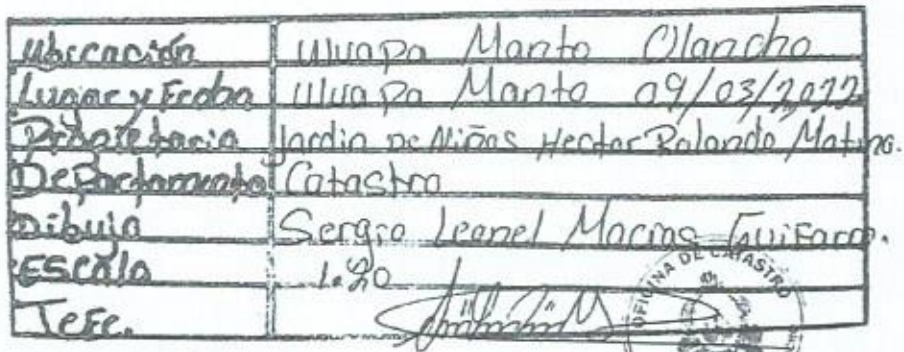 Ubicación Uluapa Manto Olancho
Lugar y Fecha Uluapa Manto 09/03/2022
Propietario Jardin De Niños Hector Rolando Matma.
Departamento Catastro
Dibujo Sergio Leonel Macias Guifarro.
Escala 1.20
Jefe.
OFICINA DE CATASTRO